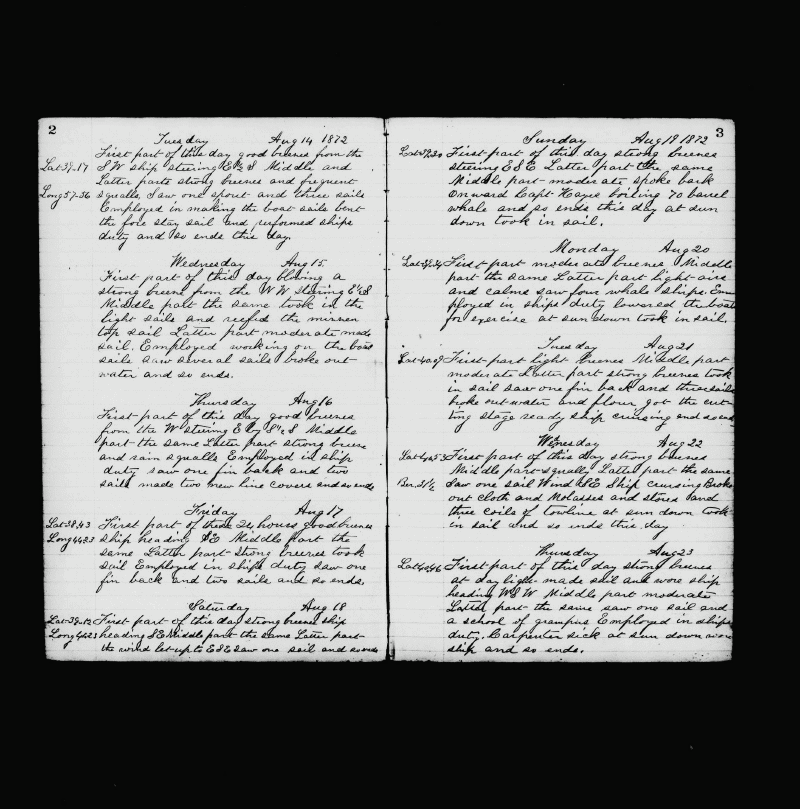 2
Tuesday Aug 14 1872
First part of this day good breezes from the
Lat 39-17 SW ship steering E½S Middle and
Latter parts strong breezes and frequent
Long 57-36 squalls. Saw one spout and three sails
Employed in making the boat sails bent
the fore stay sail and performed ships
duty and so ends this day.
Wednesday Aug 15.
First part of this day blowing a
strong breeze from the WNW Steering E½S
Middle part the same took in the
light sails and reefed the mizzen
top sail Latter part moderate made
sail. Employed working on the boat
sails saw several sails broke out
water and so ends.
Thursday Aug 16
First part of this day good breezes
from the W Steering E by S½S Middle
part the same Latter part strong breeze
and rain squalls Employed in ship
duty saw one fin back and two
sails made two new line covers and so ends
Friday Aug 17
Lat 38.43 First part of these 24 hours good breezes
Long 44.23 ship heading SE Middle part the
same Latter part strong breezes took
sail Employed in ships duty saw one
fin back and two sails and so ends.
Saturday Aug 18
First part of this day strong breezes ship
heading SE Middle part the same Latter part
the wind let up to ESE saw one sail and so ends
3
Sunday Aug 19 1872
First part of this day strong breezes
steering ESE Latter part the same
Middle part moderate spoke bark
Onward Capt Hayes boiling 70 barrel
whale and so ends this day at sun
down took in sail.
Monday Aug 20
First part moderate breezes Middle
part the same Latter part light airs
and calms saw four whale ships. Em
ployed in ships duty lowered the boats
for exercise at sun down took in sail.
Tuesday Aug 21
First part light breezes Middle part
moderate Latter part strong breezes took
in sail saw one fin back and three sails
broke out water and flour, got the cut-
ting stage ready ship cruising and so ends
Wenesday Aug 22
First part of this day strong breezes
Middle part squally Latter part the same
Saw one sail Wind SE Ship cruising Broke
out cloth and Molasses and stores and
three coils of towline at sun down took
in sail and so ends this day
Thursday Aug 23
First part of this day strong breezes
at day light made sail and wore ship
heading WSW Middle part moderate
Latter part the same saw one sail and
a school of grampus Employed in ships
duty. Carpenter sick at sun down wore
ship and so ends.